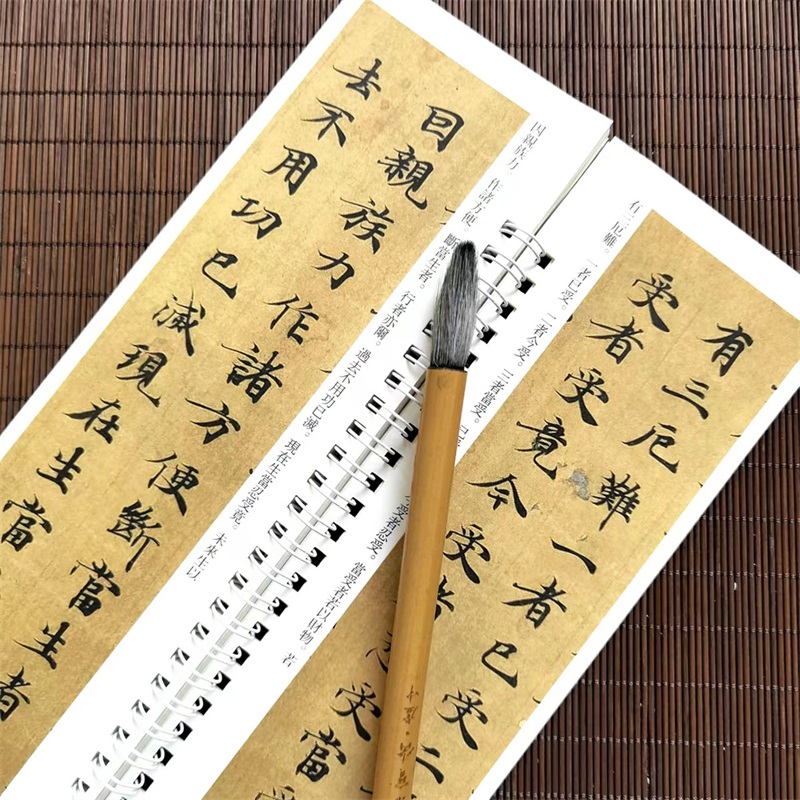 有三厄難一者已受二
受者受竟今受者忍受當
有三厄難。一者已受。二者今受。三者當受。已受
今受者忍受。當受者若以財物。若
因親族力作諸方便斷當生者
去不用功已滅現在生當
因親族力。作諸方便。斷當生者。行者亦爾。過去不用功已滅。現在生當忍受竟。未來生以